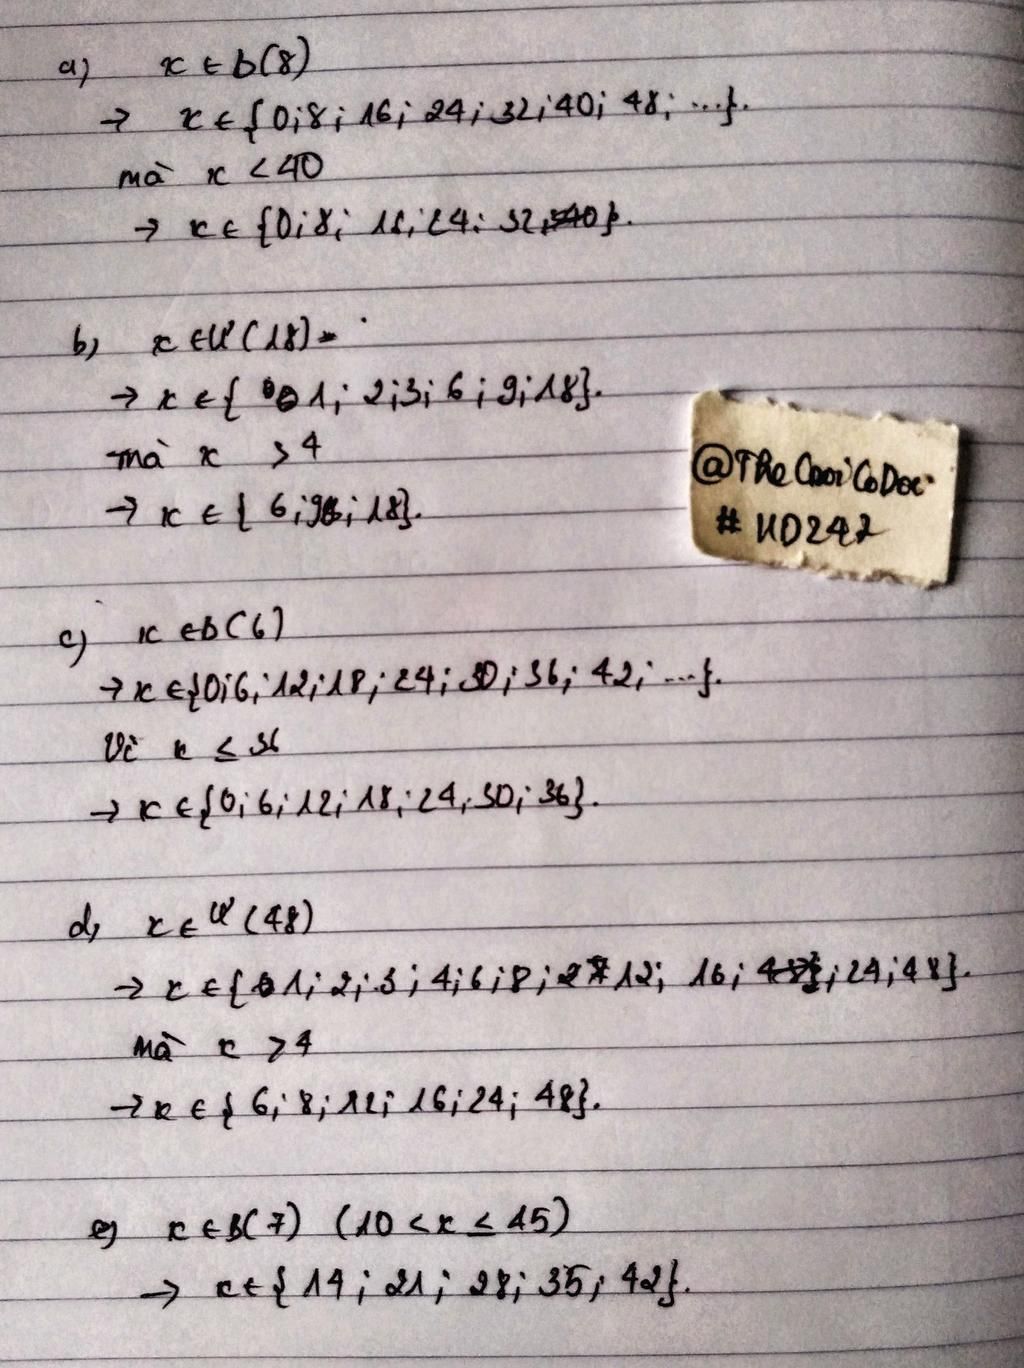 a) x ∈ b(8)
→ x ∈ {0;8; 16; 24; 32; 40; 48; ...}.
mà x < 40
→ x ∈ {0;8; 16; 24; 32}.
b) x ∈ Ư(18)
→ x ∈ { 1; 2;3; 6; 9; 18}.
mà x > 4
→ x ∈ { 6; 9; 18}.
@TheCroiCoDoc
# HD247
c) x ∈ b(6)
→ x ∈ {0;6; 12; 18; 24; 30; 36; 42; ...}.
Vì x ≤ 36
→ x ∈ {0; 6; 12; 18; 24; 30; 36}.
d) x ∈ Ư(48)
→ x ∈ { 1; 2; 3; 4; 6; 8; 12; 16; 24; 48}.
Mà x > 4
→ x ∈ { 6; 8; 12; 16; 24; 48}.
e) x ∈ B(7) (10 < x ≤ 45)
→ x ∈ { 14; 21; 28; 35; 42}.